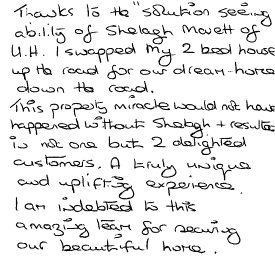 Thanks to the "solution seeing
ability of Shelagh Mavett of
U.H. I swapped my 2 bed house
up the road for our dream-home
down the road.
This property miracle would not have
happened without Shelagh + results
in not one but 2 delighted
customers. A truly unique
and uplifting experience.
I am indebted to this
amazing team for securing
our beautiful home.